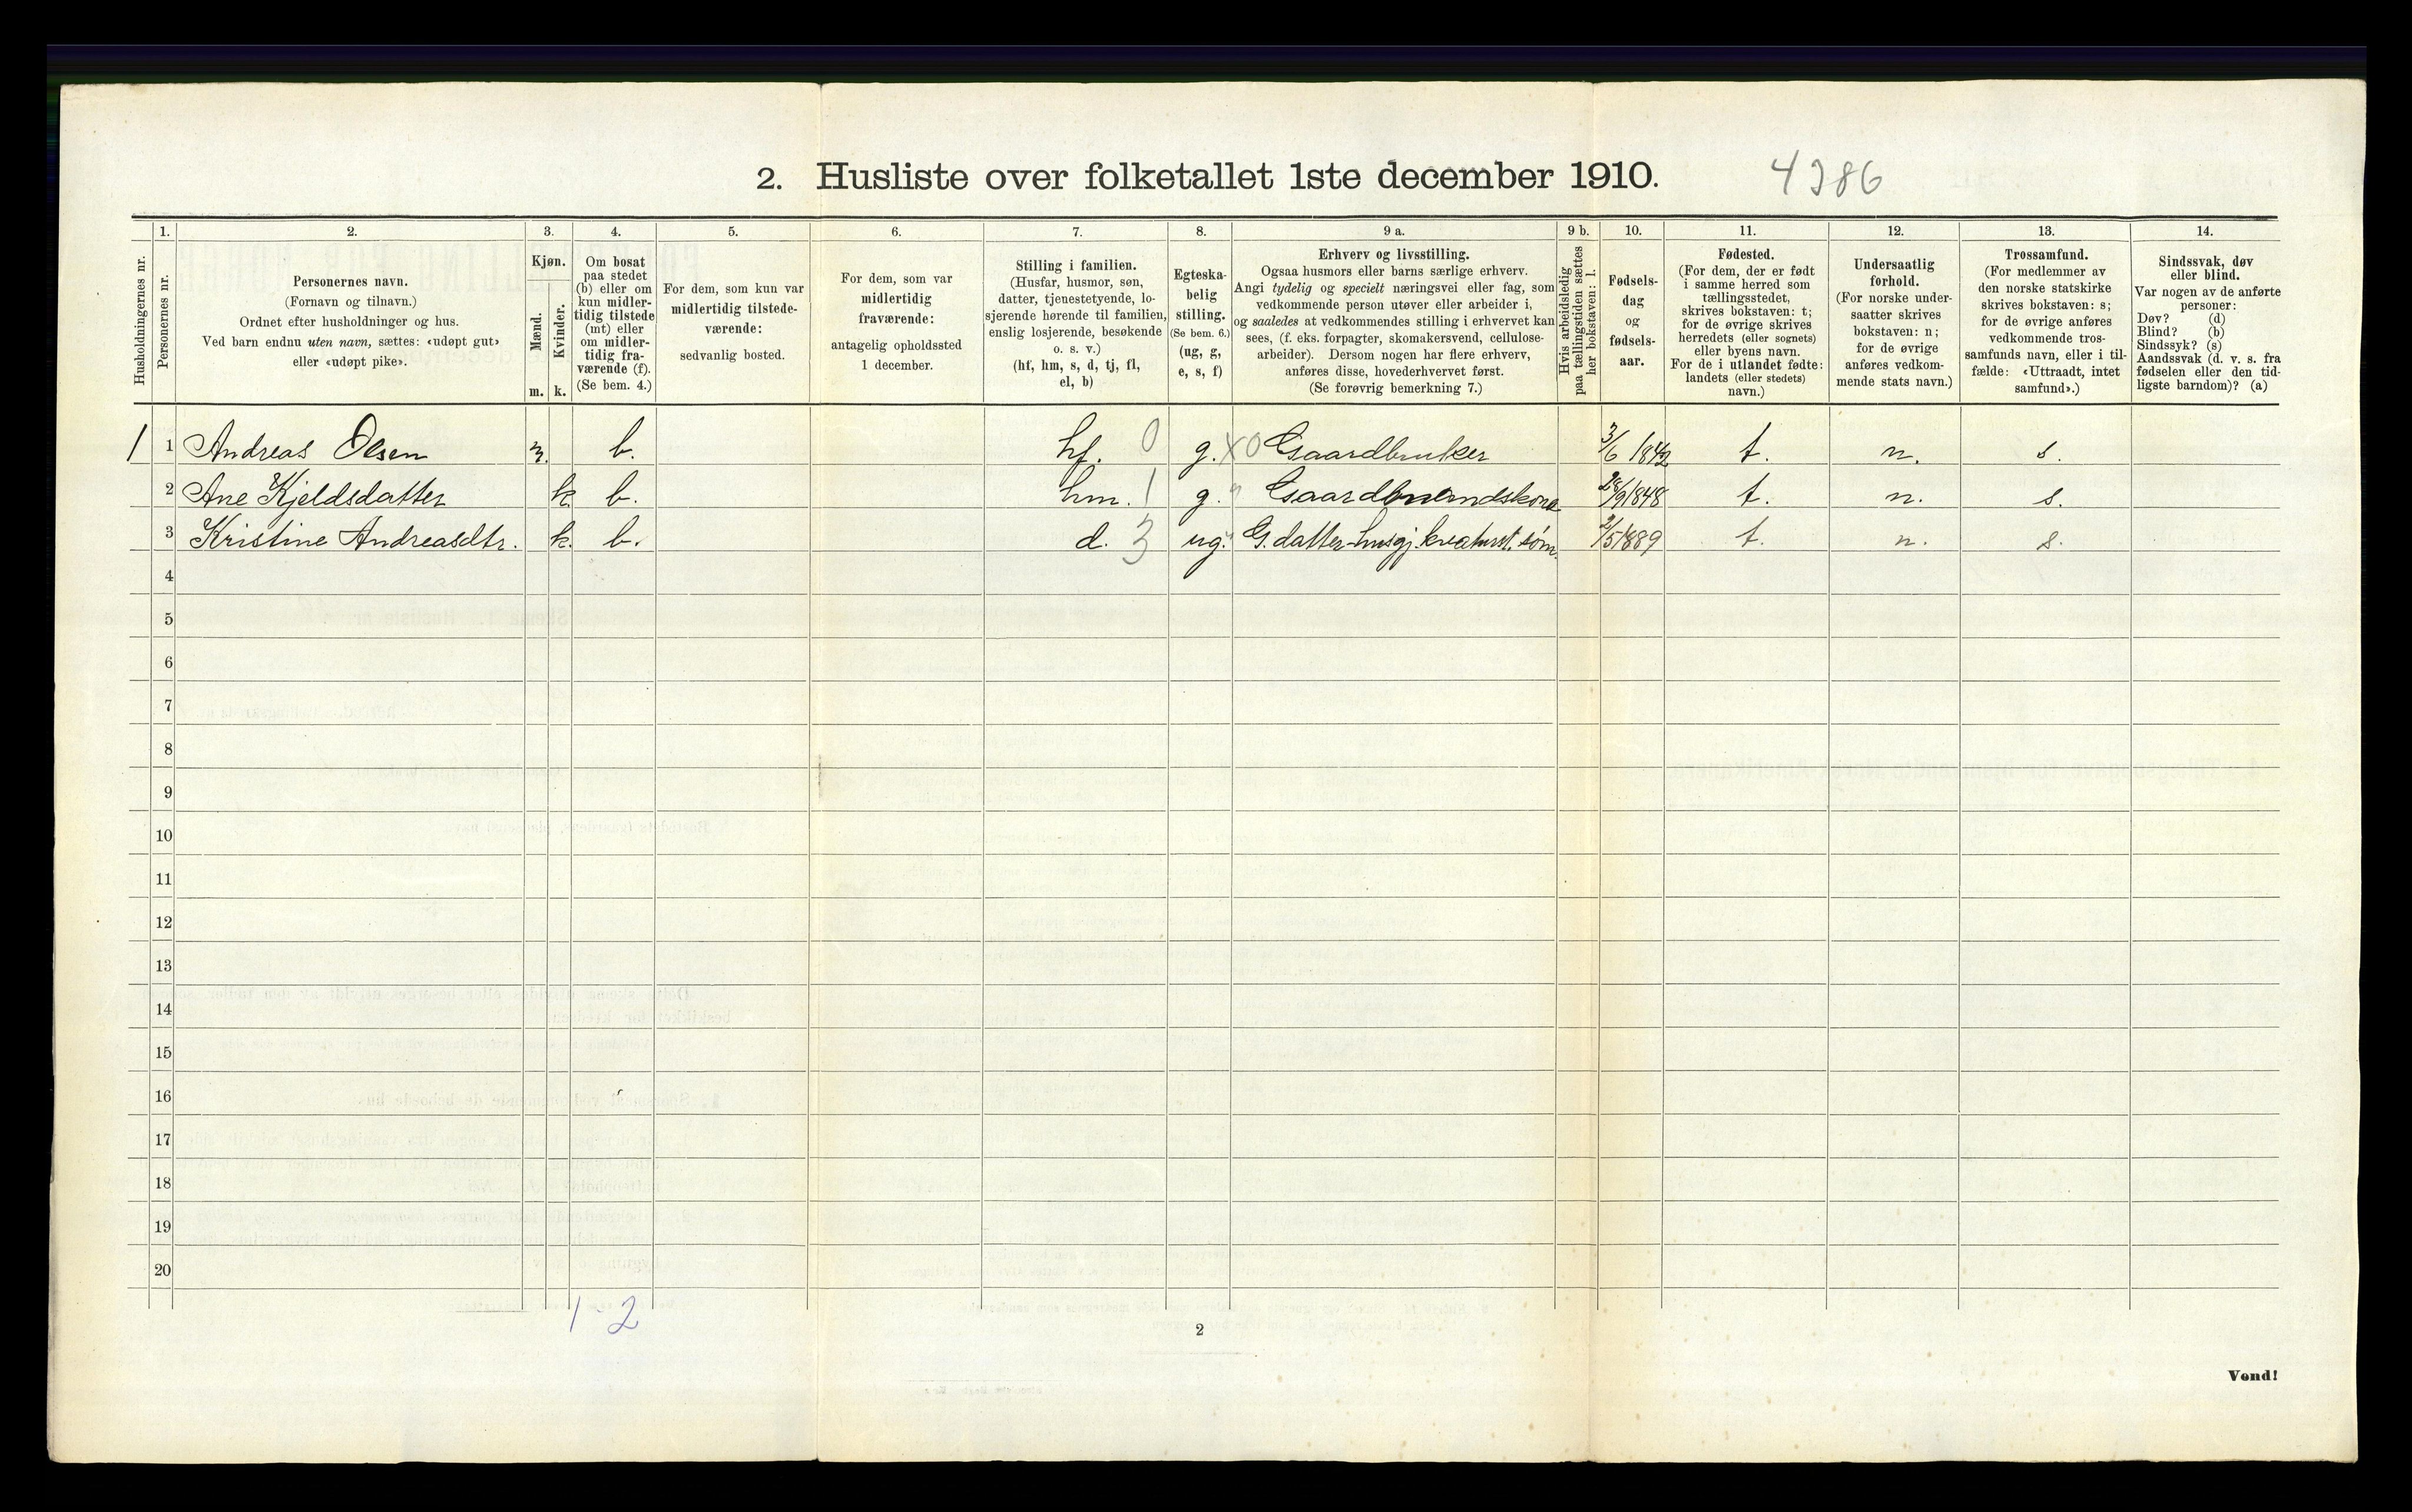 2. Husliste over folketallet 1ste december 1910.
4386
1. 2. 3. 4. 5. 6. 7. 8. 9 a. 9 b. 10. 11. 12. 13. 14.
Husholdningernes nr.
Personernes nr.
Personernes navn.
(Fornavn og tilnavn.)
Ordnet efter husholdninger og hus.
Ved barn endnu uten navn, sættes: «udøpt gut»
eller «udøpt pike».
Kjøn.
Mænd.
Kvinder.
m. k.
Om bosat
paa stedet
(b) eller om
kun midler-
tidig tilstede
(mt) eller
om midler-
tidig fra-
værende (f).
(Se bem. 4.)
For dem, som kun var
midlertidig tilstede-
værende:
sedvanlig bosted.
For dem, som var
midlertidig
fraværende:
antagelig opholdssted
1 december.
Stilling i familien.
(Husfar, husmor, søn,
datter, tjenestetyende, lo-
sjerende hørende til familien,
enslig losjerende, besøkende
o. s. v.)
(hf, hm, s, d, tj, fl,
el, b)
Egteska-
belig
stilling.
(Se bem. 6.)
(ug, g,
e, s, f)
Erhverv og livsstilling.
Ogsaa husmors eller barns særlige erhverv.
Angi tydelig og specielt næringsvei eller fag, som
vedkommende person utøver eller arbeider i,
og saaledes at vedkommendes stilling i erhvervet kan
sees, (f. eks. forpagter, skomakersvend, cellulose-
arbeider). Dersom nogen har flere erhverv,
anføres disse, hovederhvervet først.
(Se forøvrig bemerkning 7.)
Hvis arbeidsledig
paa tællingstiden sættes
her bokstaven: l.
Fødsels-
dag
og
fødsels-
aar.
Fødested.
(For dem, der er født
i samme herred som
tællingsstedet,
skrives bokstaven: t;
for de øvrige skrives
herredets (eller sognets)
eller byens navn.
For de i utlandet fødte:
landets (eller stedets)
navn.)
Undersaatlig
forhold.
(For norske under-
saatter skrives
bokstaven: n;
for de øvrige
anføres vedkom-
mende stats navn.)
Trossamfund.
(For medlemmer av
den norske statskirke
skrives bokstaven: s;
for de øvrige anføres
vedkommende tros-
samfunds navn, eller i til-
fælde: «Uttraadt, intet
samfund».)
Sindssvak, døv
eller blind.
Var nogen av de anførte
personer:
Døv? (d)
Blind? (b)
Sindssyk? (s)
Aandssvak (d. v. s. fra
fødselen eller den tid-
ligste barndom)? (a)
1 1 Andreas Olsen m. b. hf. 0 g. X0 Gaardbruker 3/6 1842 t. n. s.
2 Ane Kjeldsdatter k b. hm. 1 g. " Gaardbrukerndskone 28/9 1848 t. n. s.
3 Kristine Andreasdtr. k. b. d. 3 ug. " G. datter husgj. kreaturst. søm. 2/5 1889 t. n. s.
4
5
6
7
8
9
10
11
12
13
14
15
16
17
18
19
20
1-2
2
Vend!